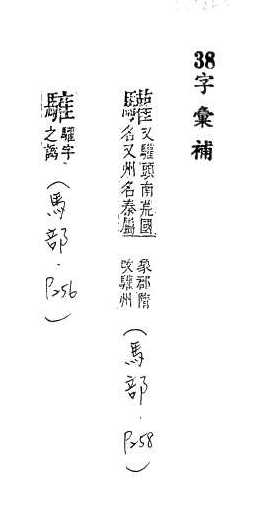 38字彙補
驩又驩頭南荒國
名又州名泰屬
象郡隋
改驩州
(馬部.P258)
驩字
之譌
(馬部.P256)